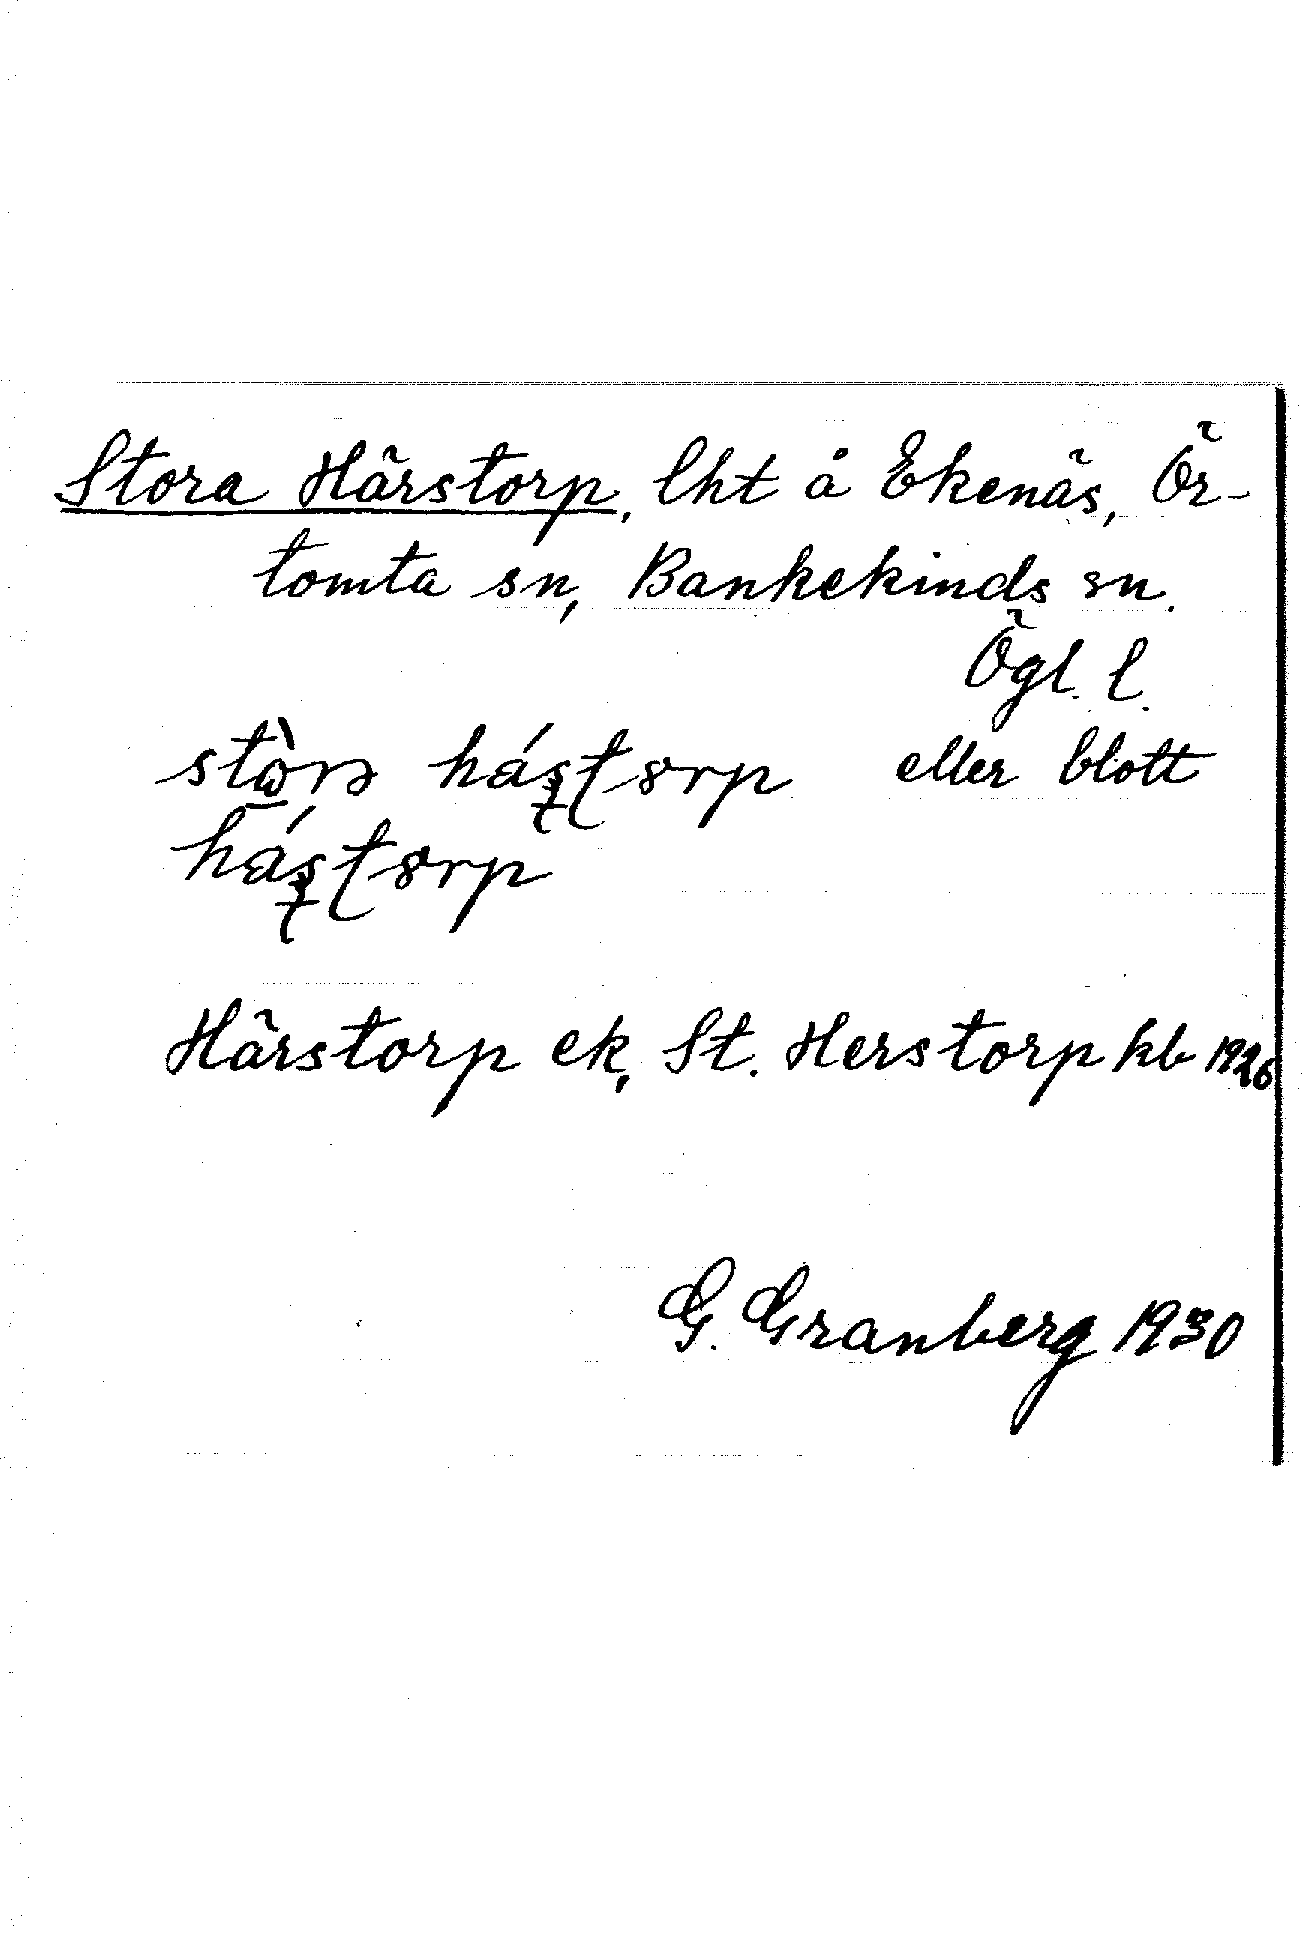 Stora Härstorp, lht å Ekenäs, Ör-
tomta sn, Bankekinds sn.
Ögl. l.
eller blott
Härstorp ek, St. Herstorp kb 1926
G. Granberg 1930